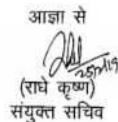 आज्ञा से
(राधे कृष्ण)
संयुक्त सचिव